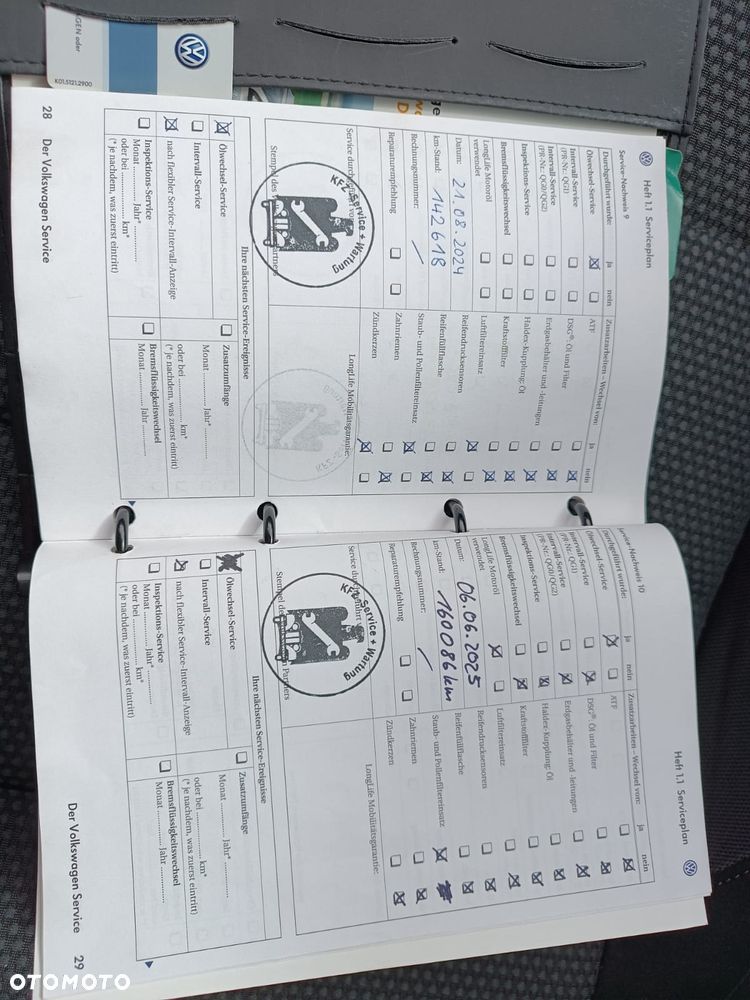 GEN oder
K01.5121.2900
28 Der Volkswagen Service
Heft 1.1 Serviceplan
Service-Nachweis 9
Durchgeführt wurde: ja nein
Ölwechsel-Service
Intervall-Service
(PR-Nr.: QG1)
Intervall-Service
(PR-Nr.: QG0/QG2)
Inspektions-Service
Bremsflüssigkeitswechsel
LongLife Motoröl
verwendet
Datum: 21.08.2024
km-Stand: 142618
Rechnungsnummer: /
Reparaturempfehlung
Zusatzarbeiten – Wechsel von: ja nein
ATF
DSG®: Öl und Filter
Erdgasbehälter und -leitungen
Haldex-Kupplung: Öl
Kraftstofffilter
Luftfiltereinsatz
Reifendrucksensoren
Reifenfüllflasche
Staub- und Pollenfiltereinsatz
Zahnriemen
Zündkerzen
Service durchgeführt
LongLife Mobilitätsgarantie:
KFZ-Service + Wartung
Stempel des
Partners
Ihre nächsten Service-Ereignisse
Ölwechsel-Service
Intervall-Service
nach flexibler Service-Intervall-Anzeige
Inspektions-Service
Monat ............ Jahr* ............
oder bei ............ km*
(* je nachdem, was zuerst eintritt)
Zusatzumfänge
Monat ............ Jahr* ............
oder bei ............ km*
(* je nachdem, was zuerst eintritt)
Bremsflüssigkeitswechsel
Monat ............ Jahr ............
Heft 1.1 Serviceplan
Service-Nachweis 10
Durchgeführt wurde: ja nein
Ölwechsel-Service
Intervall-Service
(PR-Nr.: QG1)
Intervall-Service
(PR-Nr.: QG0/QG2)
Inspektions-Service
Bremsflüssigkeitswechsel
LongLife Motoröl
verwendet
Datum: 06.06.2025
km-Stand: 160086km
Rechnungsnummer: /
Reparaturempfehlung
Zusatzarbeiten – Wechsel von: ja nein
ATF
DSG®: Öl und Filter
Erdgasbehälter und -leitungen
Haldex-Kupplung: Öl
Kraftstofffilter
Luftfiltereinsatz
Reifendrucksensoren
Reifenfüllflasche
Staub- und Pollenfiltereinsatz
Zahnriemen
Zündkerzen
Service durchgeführt
LongLife Mobilitätsgarantie:
KFZ-Service + Wartung
Stempel des
Partners
Ihre nächsten Service-Ereignisse
Ölwechsel-Service
Intervall-Service
nach flexibler Service-Intervall-Anzeige
Inspektions-Service
Monat ............ Jahr* ............
oder bei ............ km*
(* je nachdem, was zuerst eintritt)
Zusatzumfänge
Monat ............ Jahr* ............
oder bei ............ km*
(* je nachdem, was zuerst eintritt)
Bremsflüssigkeitswechsel
Monat ............ Jahr ............
Der Volkswagen Service 29
OTOMOTO